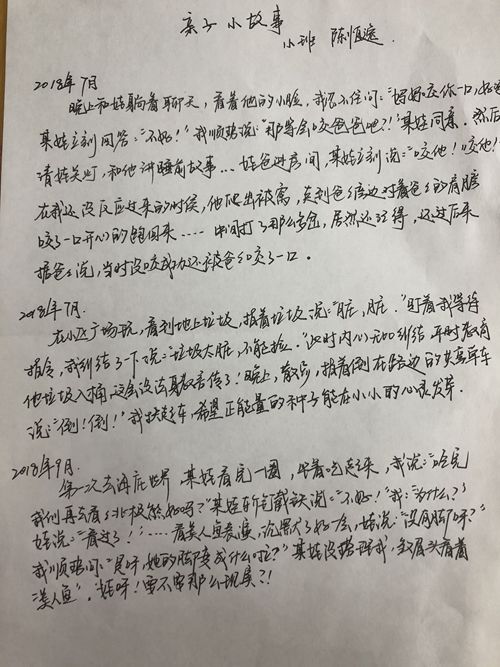 亲子小故事
小班 陈恒逸
2018年7月
晚上和娃躺着聊天，看着他的小脸，我忍不住问："妈妈咬你一口，好吗
某娃立刻回答："不好！"我顺势说："那等会咬爸爸吧？！"某娃同意。然后
请娃关灯，和他讲睡前故事…娃爸进房间，某娃立刻说："咬他！咬他！
在我还没反应过来的时候，他爬出被窝，直到爸爸旁边对着爸爸的肩膀
咬了一口开心的跑回来……中间打了那么多岔，居然还记得，还过后来
据爸爸说，当时没咬成功还被爸爸咬了一口。
2018年7月.
在小区广场玩，看到地上垃圾，指着垃圾说："脏，脏."盯着我等待
指令，我纠结了一下说："垃圾太脏，不能捡."此时内心无比纠结，平时教育
他垃圾入桶，这会没法身教言传了！晚上，散步，指着倒在路边的共享单车
说："倒！倒！"我扶起车，希望正能量的种子能在小小的心灵发芽.
2018年9月.
第一次去海底世界，某娃看完一圈，坐着吃起来，我说："吃完
我们再去看北极熊，好吗？"某娃斩钉截铁说："不好！"我："为什么？"
娃说："看过了！"……看美人鱼表演，沉默了好一会，娃说："没有脚呀？"
我顺势问："是呀，她的脚变成什么啦？"某娃没搭理我，转头看着
美人鱼"，"娃呀！要不要那么现实？！